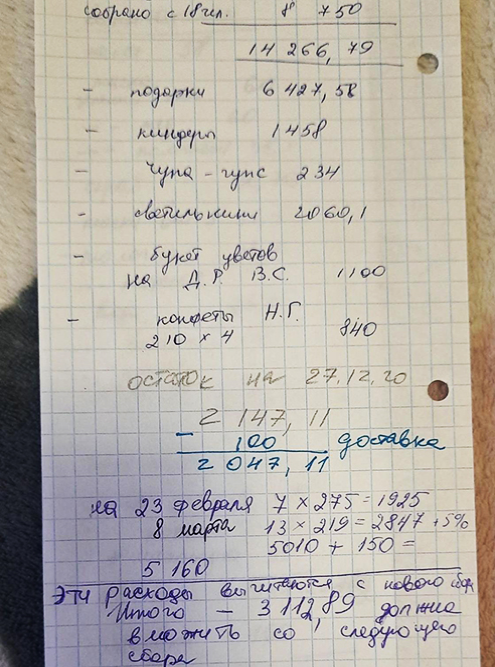 собрано с 18 чел. 8 750
14 266, 79
- подарки 6 427, 58
- киндеры 1458
- Чупа-чупс 234
- светильники 2060,1
- букет цветов
на Д.Р. В.С. 1100
- конфеты Н.Г.
210 х 4 840
остаток на 27.12.20
2 147, 11
- 100 доставка
2 047, 11
на 23 февраля 7 х 275 = 1925
8 марта 13 х 219 = 2847 +5%
5010 + 150 =
5 160
Эти расходы вычитаются с нового сбора
Итого - 3 112,89 должна
вложить со следующего
сбора